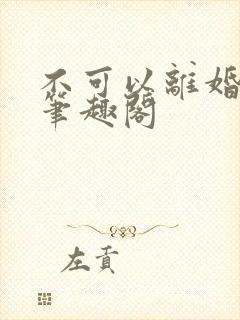 不可以離婚
筆趣閣
左貢